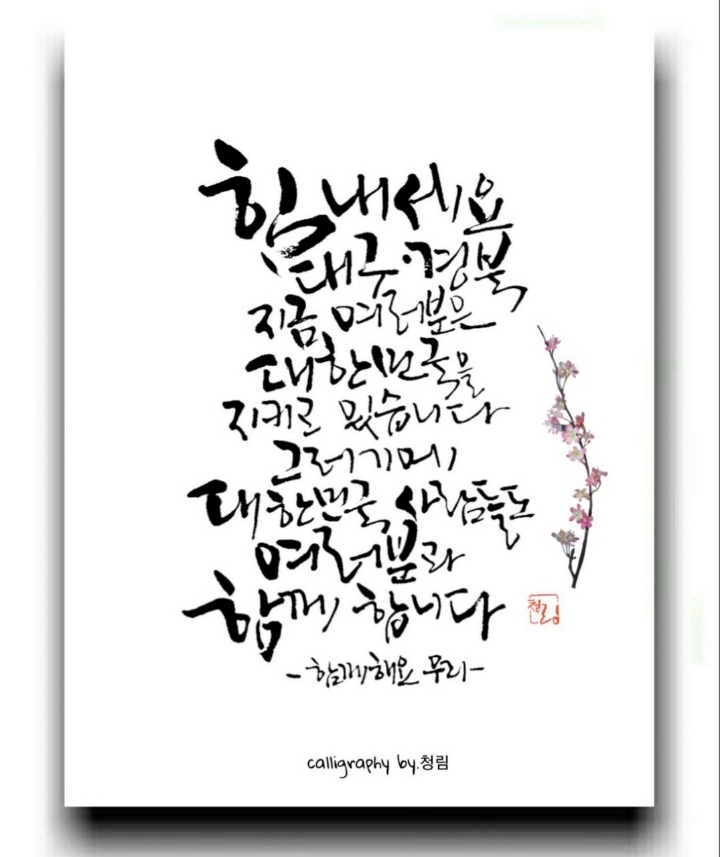 힘내세요
대구·경북
지금 여러분은
대한민국을
지키고 있습니다
그러기에
대한민국 사람들도
여러분과
함께 합니다
-함께해요 우리-
청림
calligraphy by.청림